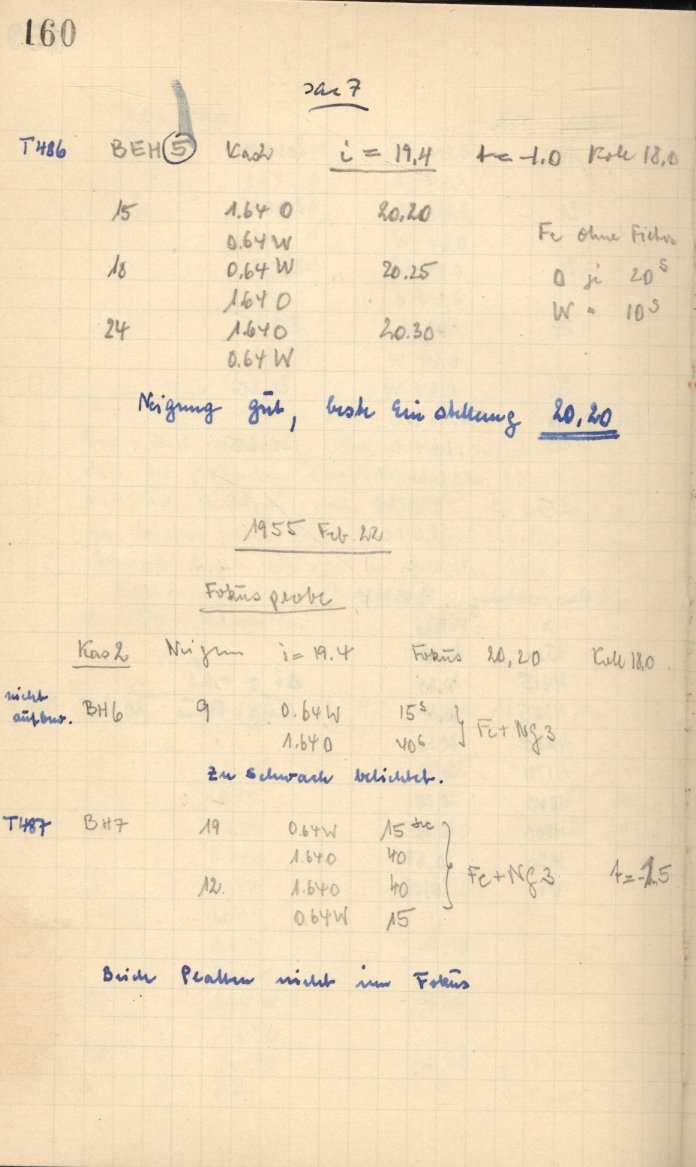 160
T486 BEH 5 Kas2 i = 19,4 t = -1.0 Kolk 18,0
15 1.64 O 20.20
0.64 W
Fe ohne Filter
18 0,64 W 20.25
O je 20s
1.64 O
W " 10s
24 1.64 O 20.30
0.64 W
Neigung gut, beste Einstellung 20,20
1955 Feb. 22
Fokusprobe
Kas2 i = 19.4 Fokus 20,20 18,0
nicht
BH6 9 0.64 W 15s
1.64 O 40s
Fe + Ng3
Zu schwach belichtet.
T487 BH7 19 0.64 W 15 sec
1.64 O 40
Fe + Ng3
12. 1.64 O 40
0.64 W 15
Beide Platten nicht im Fokus